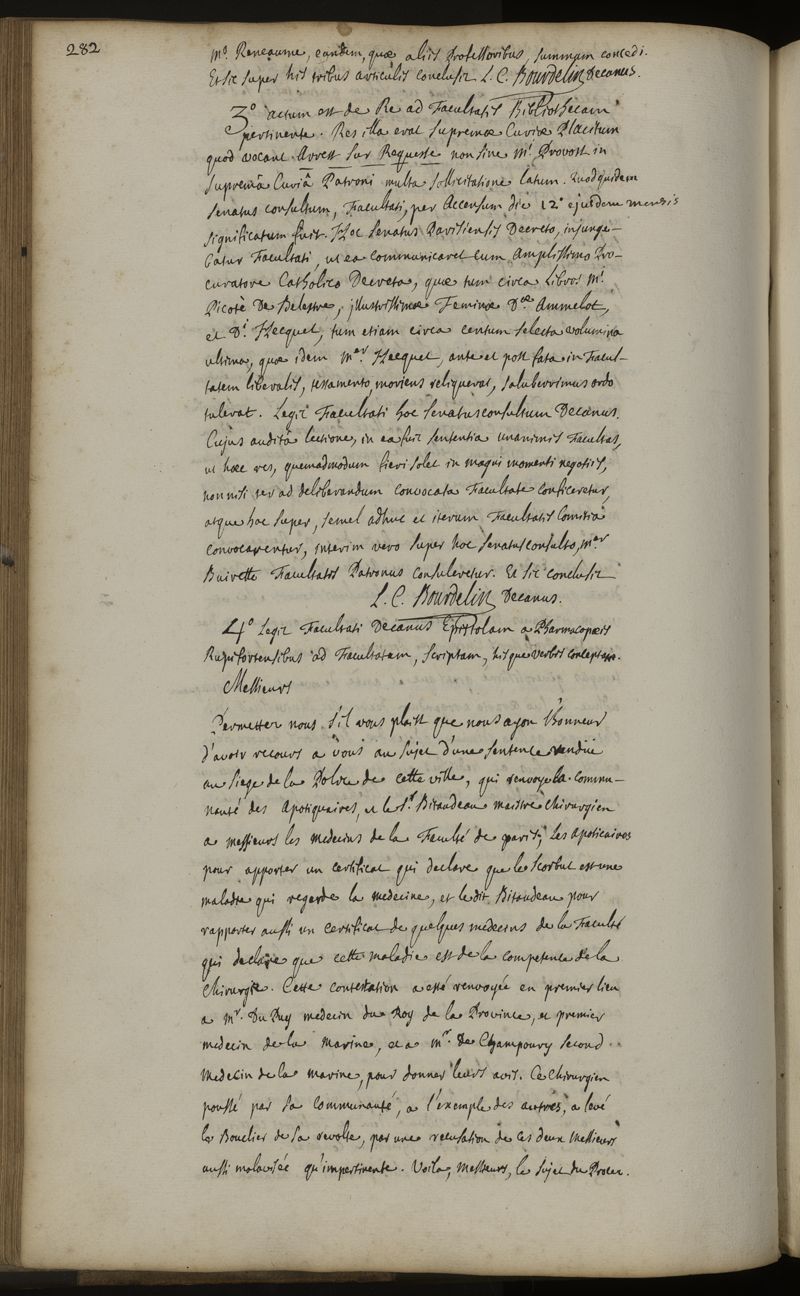 282
mo. Reneaume, eandem, quæ aliis Professoribus, summam concedi.
Et sic super his tribus articulis conclusit L. C. Bourdelin Decanus.
3° actum est de Re ad Facultatis Bibliothecam
pertinente. Res illa erat supremæ Curiæ Placitum
quod vocant Arrest sur Requeste non sine mi. Provost in
supremâ Curiâ Patroni multa sollicitatione latum. Quod quidem
senatus consultum, Facultati, per Accensum die 12a ejusdem mensis
significatum fuit. Hoc senatus Parisiensis Decreto, injunge-
batur Facultati, ut ea communicaret cum Amplissimo Pro-
curatore Catholico Decreta, quæ tum circa Libros mi.
Picoté De Belestre, jllustrissimæ Feminæ Dæ Ammelot,
et Di. Hecquet, tum etiam circa centum selecta volumina
ultima, quæ idem mer. Hecquet, ante et post fata in Facul-
tatem liberalis, testamento, moriens reliquerat, saluberrimus ordo
tulerat. Legit Facultati hoc senatusconsultum Decanus.
Cujus auditâ lectione, in ea fuit sententia unanimis Facultas,
ut hæc res, quemadmodum fieri solet in magni momenti negotiis,
non nisi ter ad deliberandum convocata Facultate conficeretur,
atque hoc super, semel adhuc et iterum Facultatis Comitia
convocarentur, interim vero super hoc senatusconsulto, mer
Buirette Facultatis Patronus consuleretur. Et sic conclusit
L. C. Bourdelin Decanus.
4° Legit Facultati Decanus Epistolam a Pharmacopæis
Rupifortensibus ad Facultatem, scriptam, hisque verbis conceptam.
Messieurs
Permettez nous s'il vous plaist que nous ayon l'honneur
d'avoir recours a vous au sujet d'une sentence rendüe
au siege de la Police de cette ville, qui renvoye la commu-
nauté des Apotiquaires, et le sr. Bitaudeau maistre chirurgien
a messieurs les medecins de la Faculté de paris; les apoticaires
pour apporter un certificat qui declare que le scorbut est une
maladie qui regarde la medecine, et le dit Bitaudeau pour
rapporter aussi un certificat de quelques médecins de la Faculté
qui declare que cette maladie est de la competence de la
chirurgie. Cette contestation a esté renvoyée en premier lieu
a mr. Du Puy medecin du Roy de la Province, et premier
medecin de la marine, et a mr. De Champoury second
medecin de la marine, pour donner leurs avis. Ce chirurgien
poussé par sa communauté, a l'exemple des autres, a levé
le Bouclier de sa revolte, par une recusation de ces deux messieurs
aussi malavisée qu'impertinente. Voila, messieurs, le sujet du Procez.